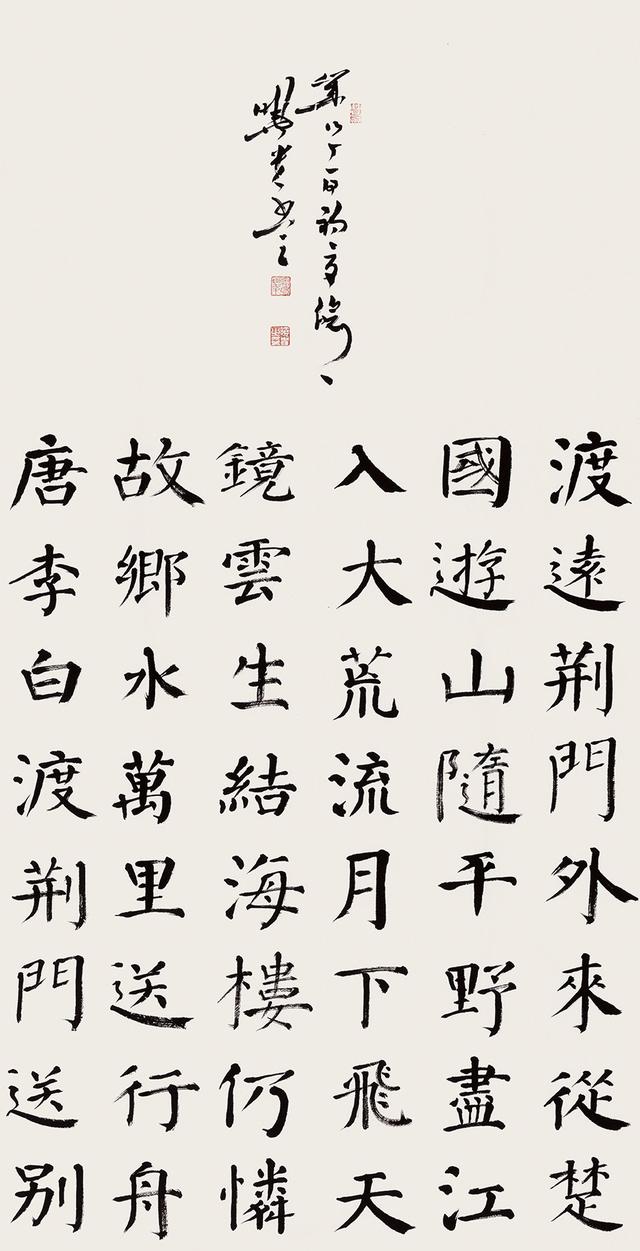 渡遠荆門外來從楚
國遊山隨平野盡江
入大荒流月下飛天
鏡雲生結海樓仍憐
故鄉水萬里送行舟
唐李白渡荆門送别